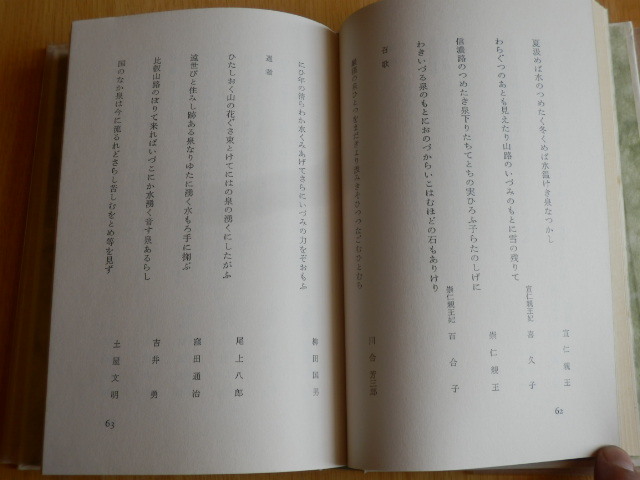 夏汲めば水のつめたく冬くめば水温けき泉なつかし
宣仁親王
宣仁親王妃 喜久子
わらぐつのあとも見えたり山路のいづみのもとに雪の残りて
崇仁親王
信濃路のつめたき泉下りたちてとちの実ひろふ子らたのしげに
崇仁親王妃 百合子
わきいづる泉のもとにおのづからいこはむほどの石もありけり
召歌
62
柳田国男
にひ年の待ちわか水くみあげてさらにいづみの力をぞおもふ
選者
尾上八郎
ひたしおく山の花ぐさ束とけてにはの泉の湧くにしたがふ
窪田通治
遁世びと住みし跡ある泉なりゆたに湧く水もろ手に掬ぶ
吉井勇
比叡山路のぼりて来ればいづこにか水湧く音す泉あるらし
土屋文明
国のなか泉は今に流るれどさらし苦しむをとめ等を見ず
63